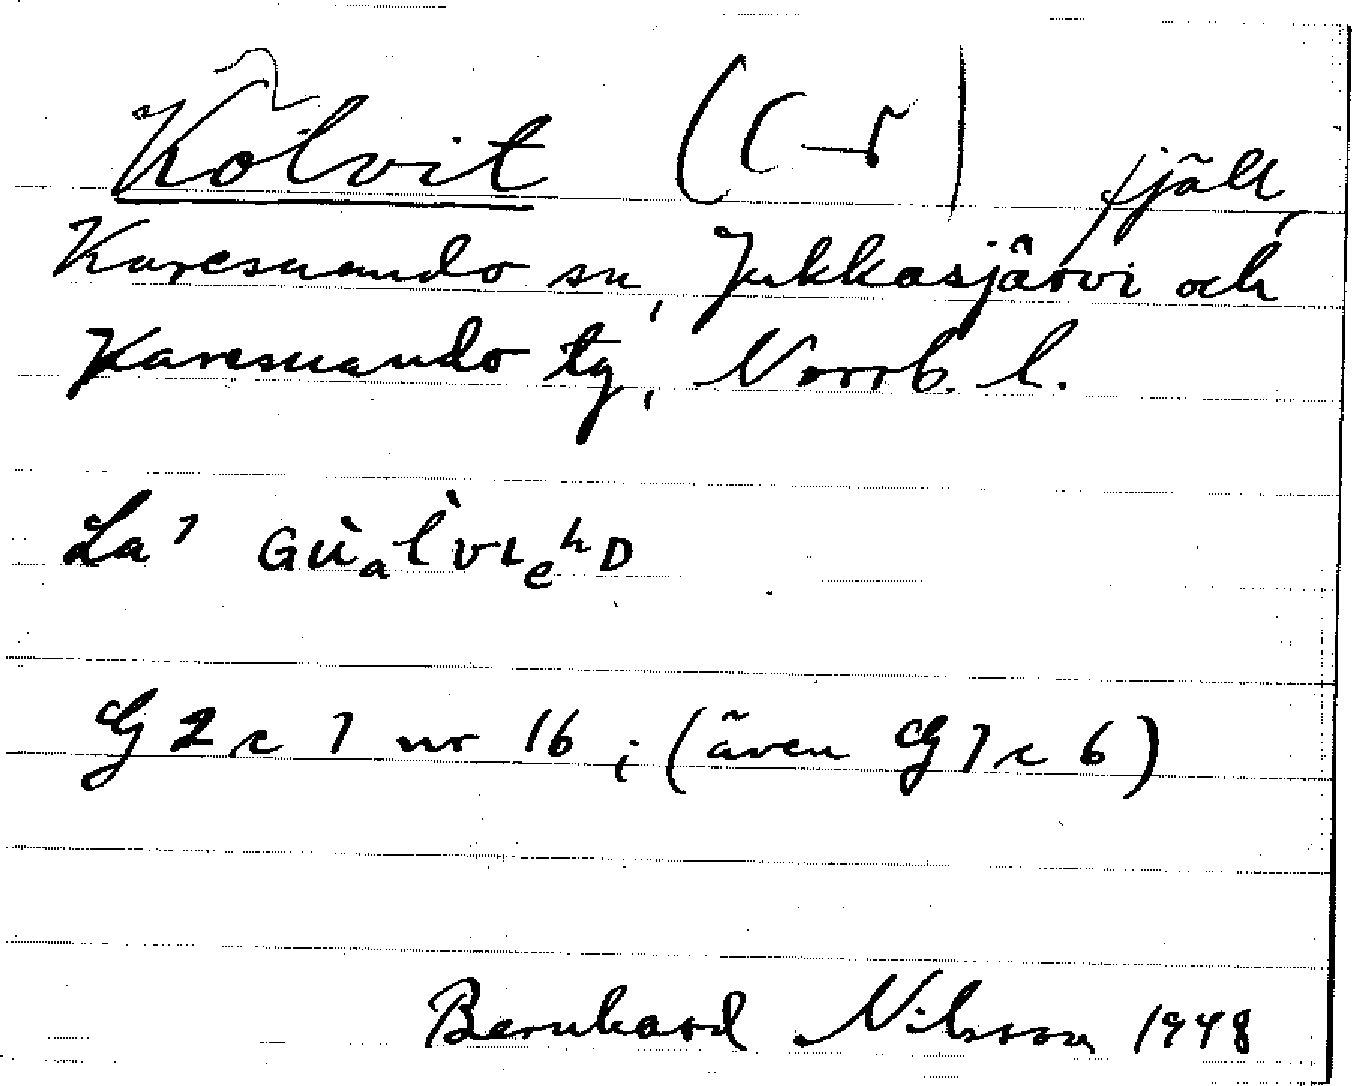 Kolvit (C-r) fjäll,
Karesuando sn, Jukkasjärvi och
Karesuando tg, Norrb. l.
La 7
G 2 c 7 nr 16; (även G 7 c 6)
Bernhard Nilsson 1948